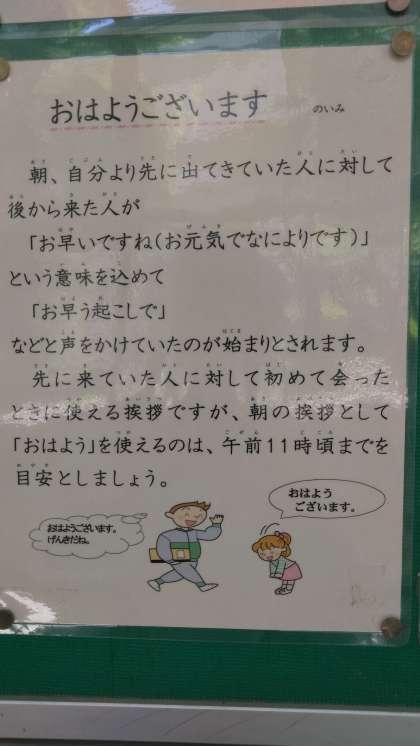 おはようございます のいみ
朝、自分より先に出てきていた人に対して
後から来た人が
「お早いですね(お元気でなによりです)」
という意味を込めて
「お早う起こしで」
などと声をかけていたのが始まりとされます。
先に来ていた人に対して初めて会った
ときに使える挨拶ですが、朝の挨拶として
「おはよう」を使えるのは、午前11時頃までを
目安としましょう。
おはよう
ございます。
おはようございます。
げんきだね。